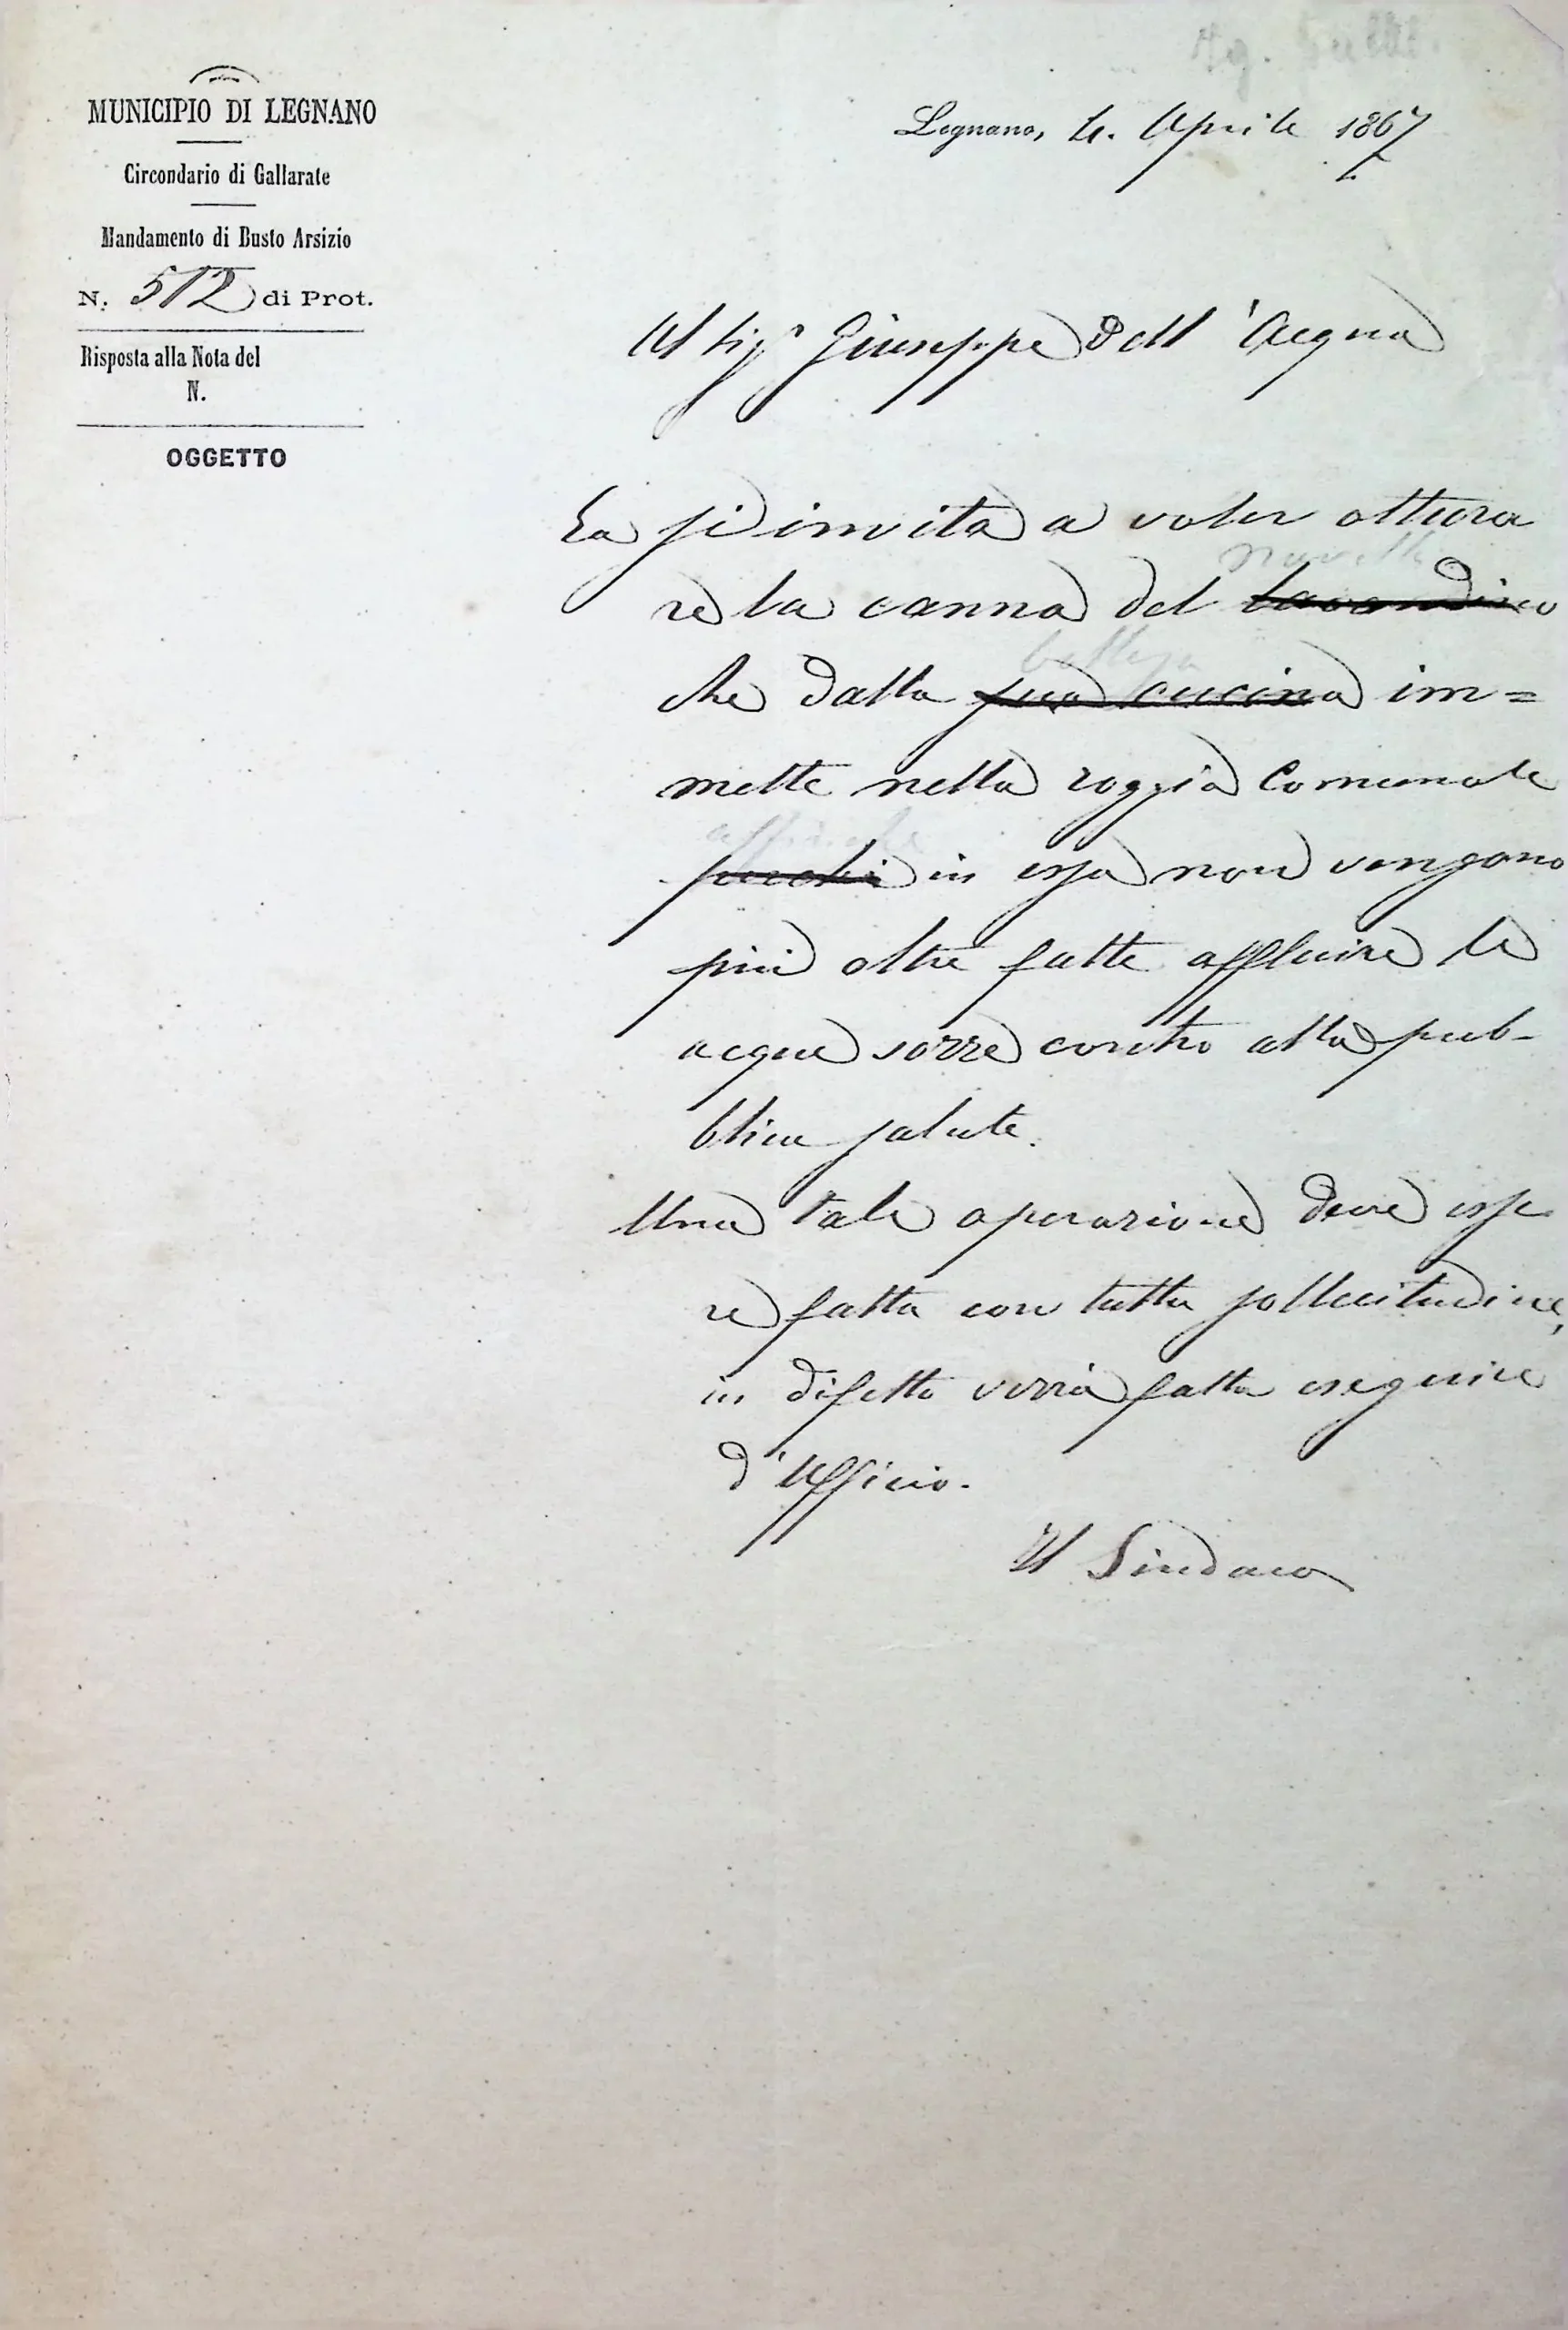 MUNICIPIO DI LEGNANO
Circondario di Gallarate
Mandamento di Busto Arsizio
N. 512 di Prot.
Risposta alla Nota del
N.
OGGETTO
Legnano, 4. Aprile 1867
Al Sigr Giuseppe Dell'Acqua
La si invita a voler ottura
re la canna del lavandino
che dalla sua cucina im=
mette nella roggia Comunale
affinché
perchè in essa non vengano
più oltre fatte affluire le
acque sozze contro alla pub-
blica salute.
Una tale operazione deve esse
re fatta con tutta sollecitudine,
in difetto verrà fatta eseguire
d'Ufficio.
Il Sindaco